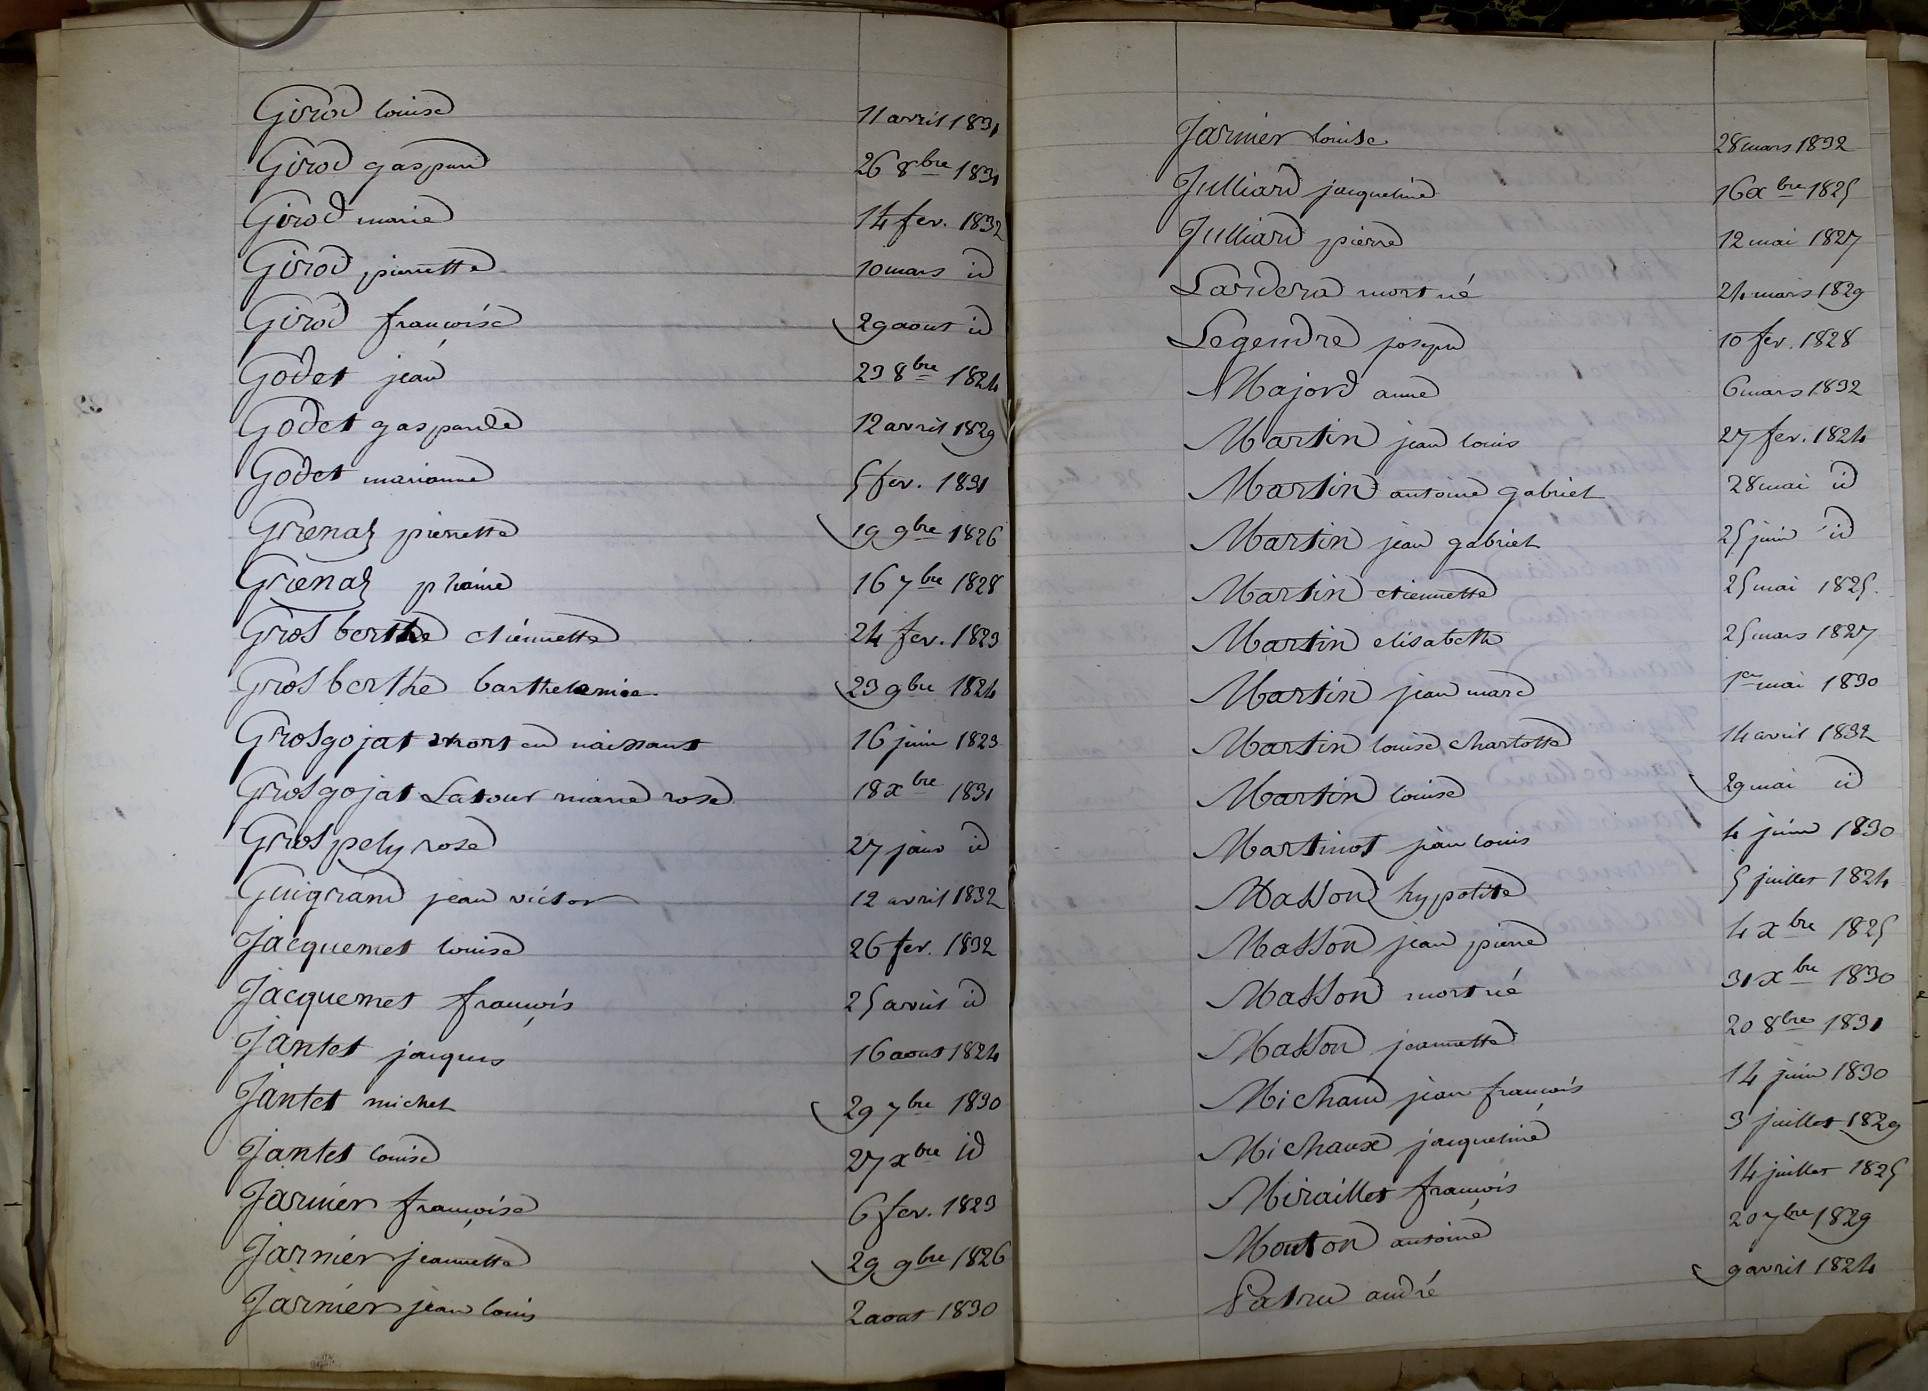 Girod louise 11 avril 1831
Girod gaspard 26 8bre 1831
Girod marie 14 fev. 1832
Girod pierrette 10 mars id
Girod françoise 29 aout id
Godet jean 23 8bre 1824
Godet gasparde 12 avril 1829
Godet marianne 5 fev. 1831
Grenaz pierrette 19 9bre 1826
Grenaz 16 7bre 1828
Gros berthe etiennette 24 fev. 1823
Gros berthe barthelemie 23 9bre 1824
Grosgojat mort en naissant 16 juin 1823
Grosgojat Latour marie rose 18 xbre 1831
Grospely rose 27 janv id
Guigrand jean victor 12 avril 1832
Jacquemet louise 26 fev. 1832
Jacquemet françois 25 avril id
Jantet jacques 16 aout 1824
Jantet michel 29 7bre 1830
Jantet louise 27 xbre id
Jarnier françoise 6 fev. 1823
Jarnier jeannette 29 9bre 1826
Jarnier jean louis 2 aout 1830
Jarnier louise 28 mars 1832
Julliard jacqueline 16 xbre 1825
Julliard pierre 12 mai 1827
Lardera mort né 24 mars 1829
Legendre joseph 10 fev. 1828
Majord anne 6 mars 1832
Martin jean louis 27 fev. 1824
Martin antoine gabriel 28 mai id
Martin jean gabriel 25 juin id
Martin etiennette 25 mai 1825.
Martin elisabeth 25 mars 1827
Martin jean marc 1er mai 1830
Martin louise charlotte 14 avril 1832
Martin louise 29 mai id
Martinot jean louis 4 juin 1830
Masson hypolite 5 juillet 1824
Masson jean pierre 4 xbre 1825
Masson mort né 31 xbre 1830
Masson jeannette 20 8bre 1831
Michaud jean françois 14 juin 1830
Michaux jacqueline 3 juillet 1829
Miraillet françois 14 juillet 1825
Mouton antoine 20 7bre 1829
Patru andré 9 avril 1824